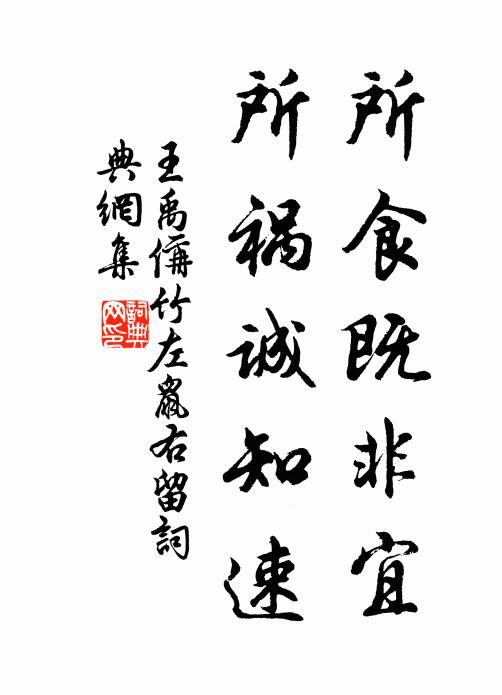 所食既非宜
所禍诚知速
王禹偁竹左鼠右留詞
典網集
詞典
网印